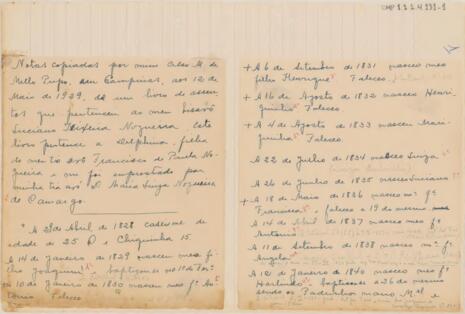 CMP 1.1.2.4.231-1
Notas copiadas por mim Celso M. de
Mello Pupo, em Campinas, aos 12 de
Maio de 1929, de um livro de assen-
tos que pertenceu ao meu bisavô
Luciano Teixeira Nogueira, este
livro pertence a Delphina, filha
do meu tio avô Francisco de Paula No-
gueira e me foi emprestado por
minha tia avó D. Maria Luiza Nogueira
de Camargo.
A 2 de Abril de 1828 casei-me
de idade de 25 e Chiquinha 15
A 14 de Janeiro de 1829 nasceu meu fi-
lho Joaquim baptizou-se no 1º de
+ 10 de Janeiro de 1830 nasceu meu fº An-
tonio Faleceo
+ A 6 de Setembro de 1831 nasceo meo
filho Henrique Faleceo.
+ A 16 de Agosto de 1832 nasceo Henri-
quinha Faleceo
+ A 4 de Agosto de 1833 nasceu Mari-
quinha Faleceo.
A 22 de Julho de 1834 nasceo Luiza
A 26 de Junho de 1835 nasceo Luciano
+ A 18 de Maio de 1836 nasceo mª fª
Francisca, faleceo a 19 do mesmo mes
A 14 de Abril de 1837 nasceo meo fº
Antonio
A 11 de Setembro de 1838 nasceo mª fª
Angela
A 12 de Janeiro de 1840 nasceo meo fº
Harlindo baptizou-se a 26 do mesmo
sendo os Padrinhos mano Mel e